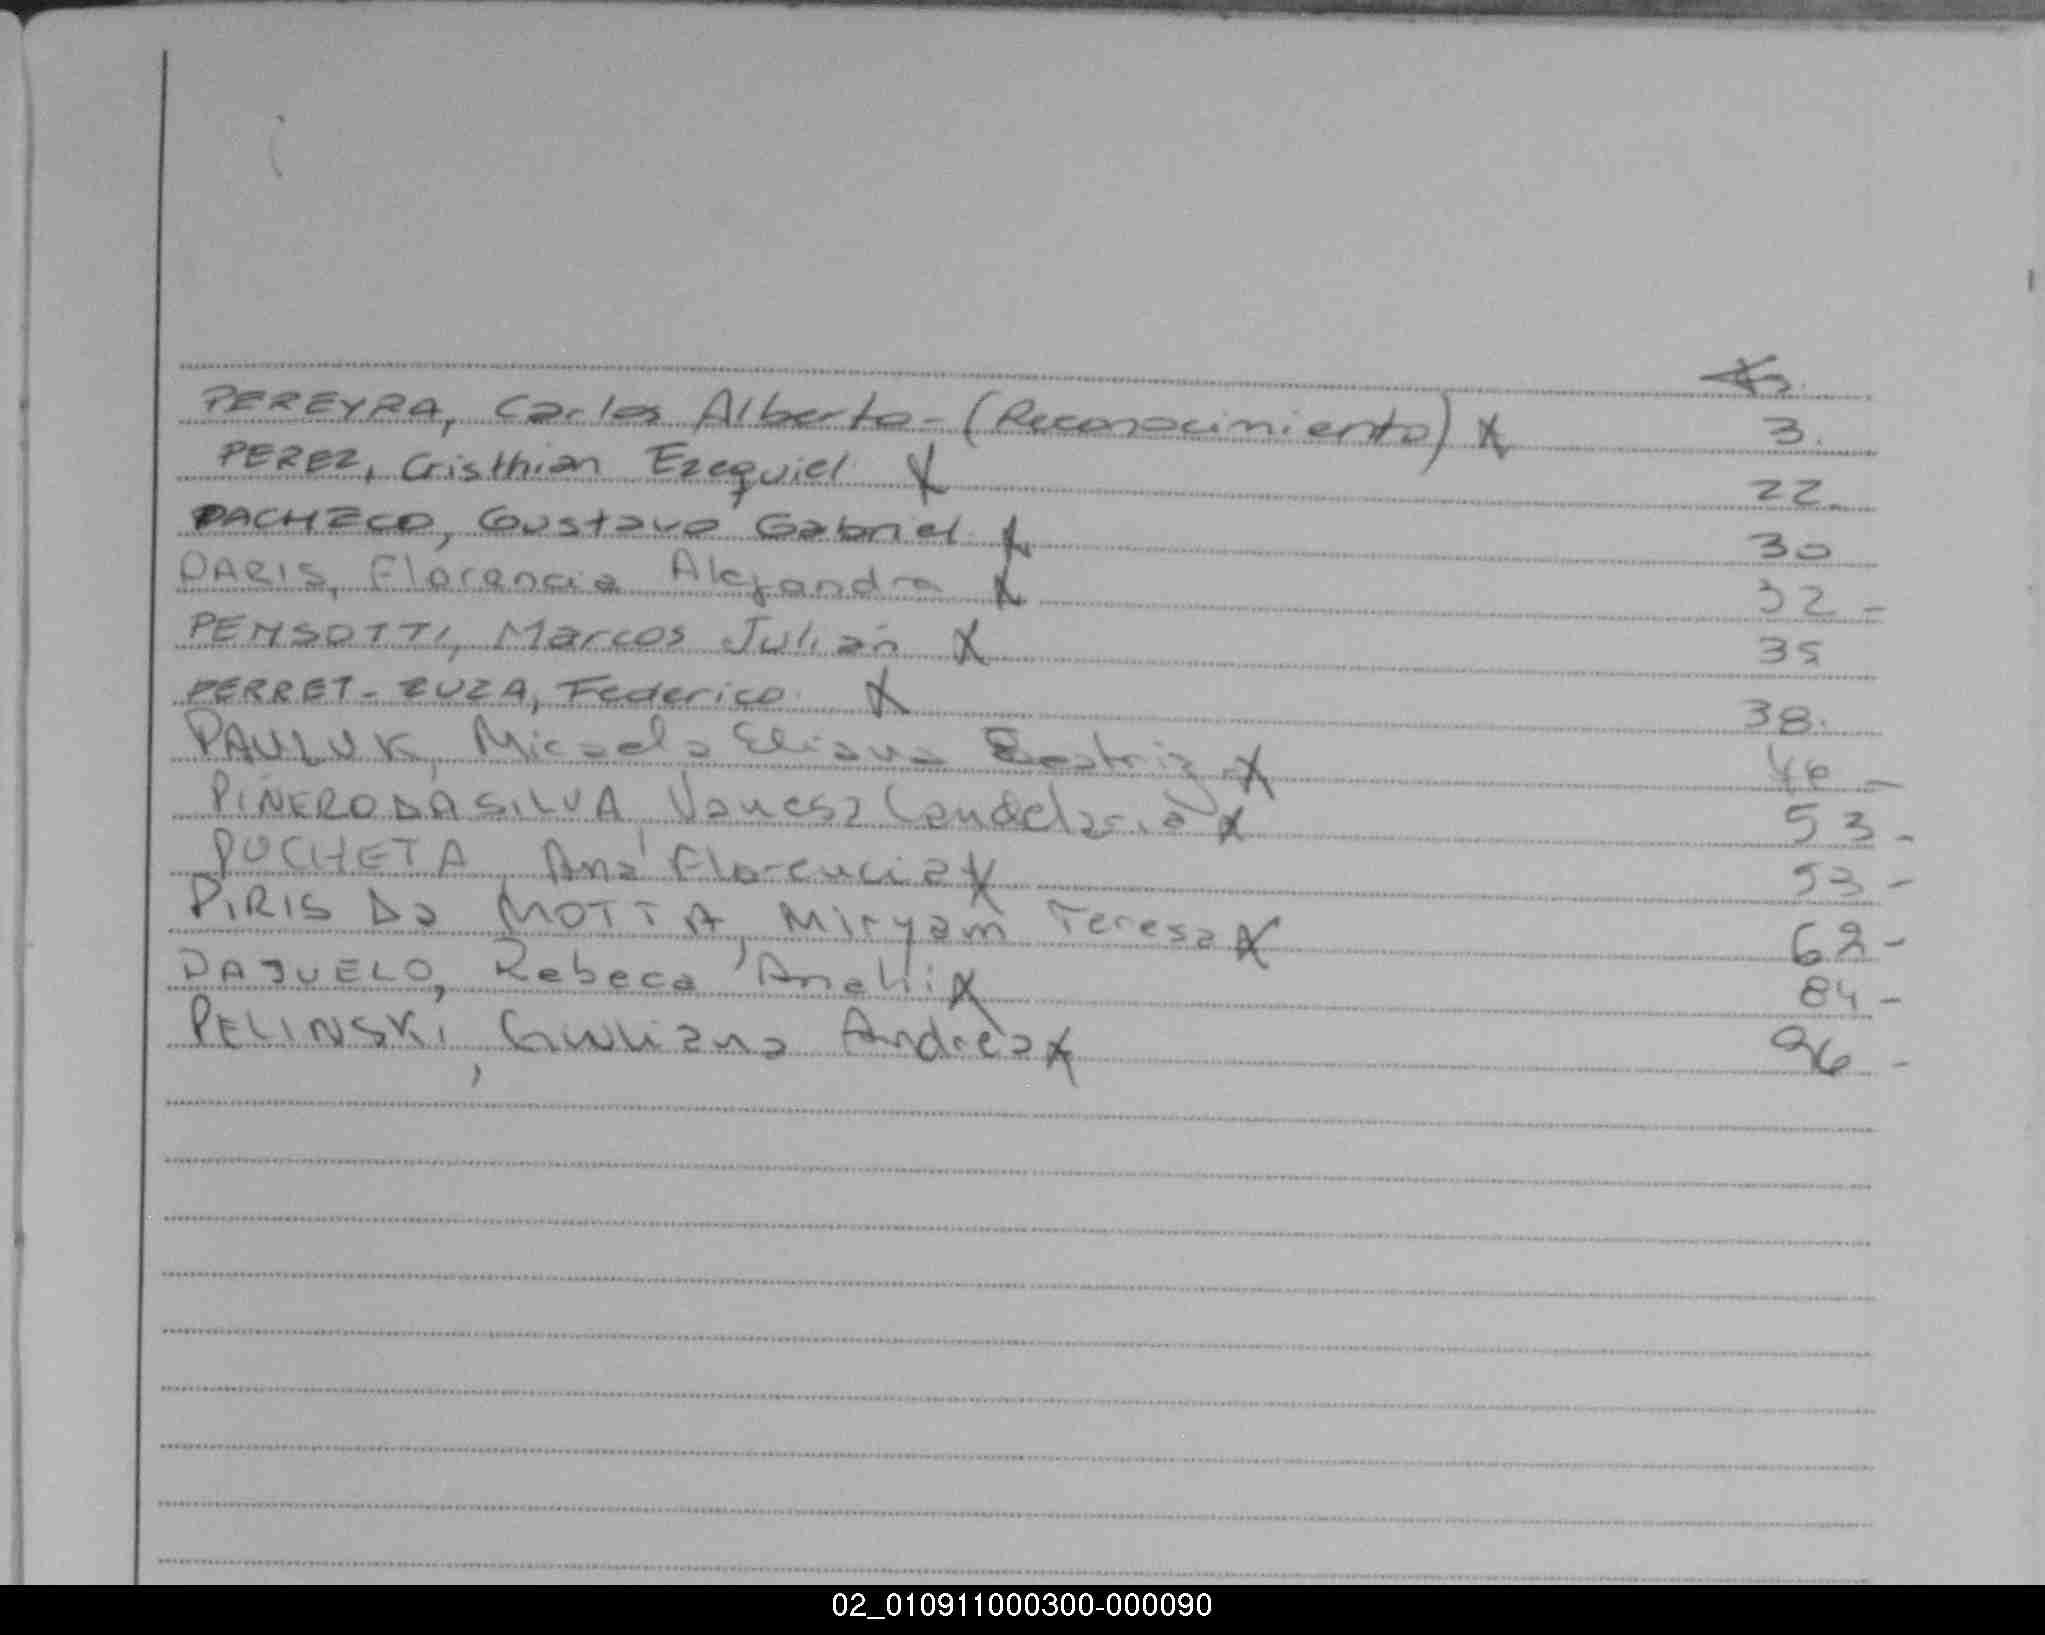 Fs.
PEREYRA, Carlos Alberto - (Reconocimiento) X 3.
PEREZ, Cristhian Ezequiel. X 22.
PACHECO, Gustavo Gabriel. X 30
PARIS, Florencia Alejandra X 32 -
PENSOTTI, Marcos Julián X 35
PERRET-ZUZA, Federico. X 38.
PAULUK, Micaela Eliana Beatriz X 46 -
PIÑERO DA SILVA, Vanesa Candelaria X 53 -
PUCHETA, Ana Florencia X 53 -
PIRIS Da MOTTA, Miryam Teresa X 62 -
PAJUELO, Rebeca Anahi X 84 -
PELINSKI, Giuliana Andrea X 96 -
02_010911000300-000090